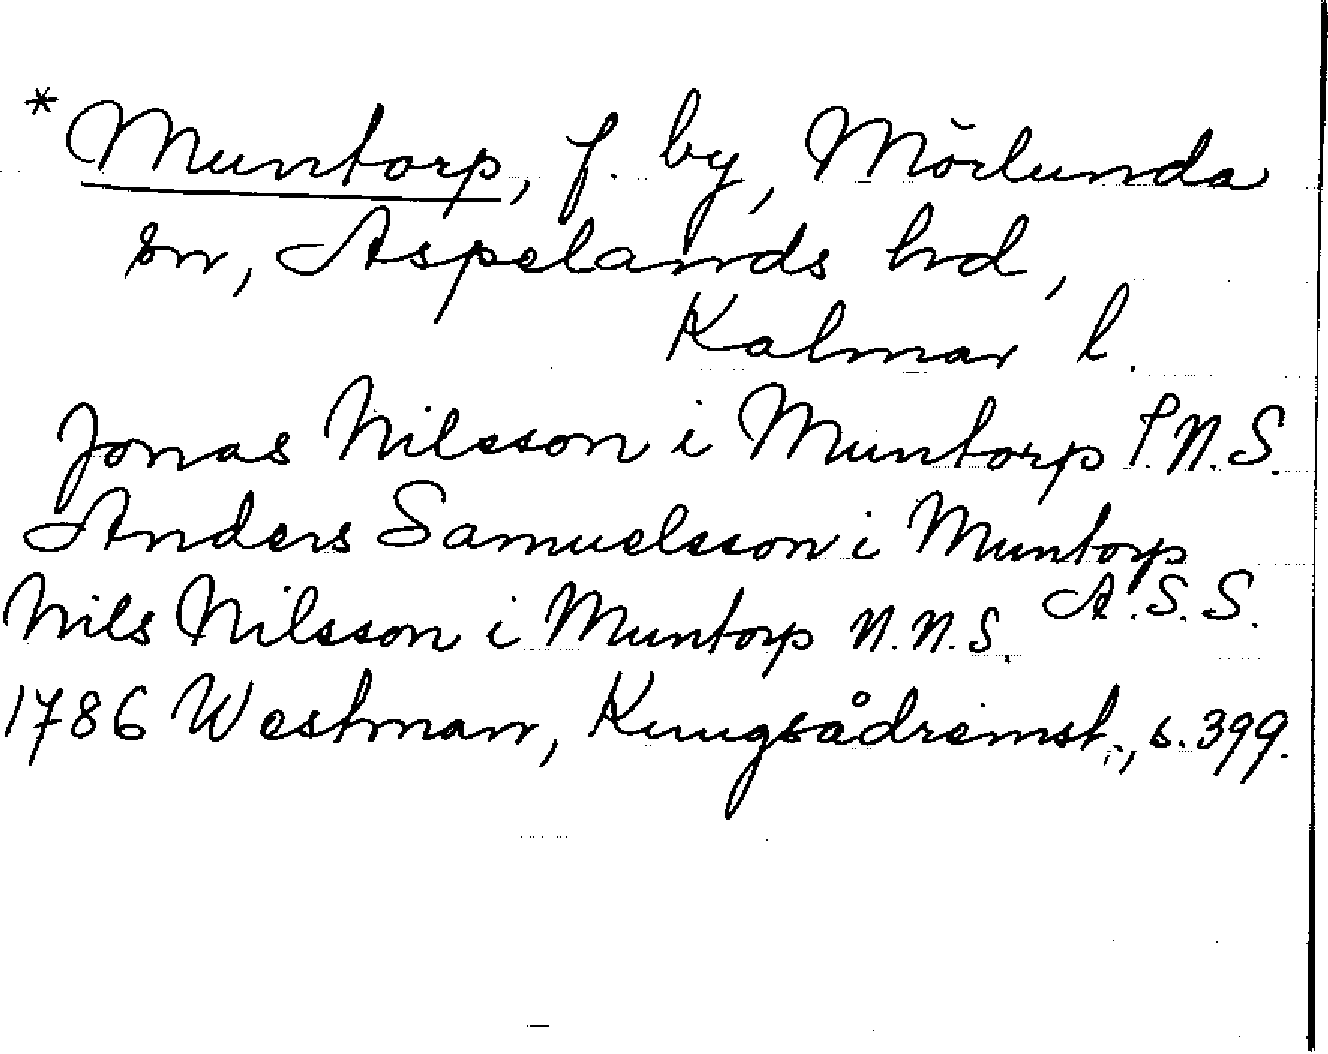 * Muntorp, f. by, Mörlunda
sn, Aspelands hd,
Kalmar l.
Jonas Nilsson i Muntorp I.N.S.
Anders Samuelsson i Muntorp
A.S.S.
Nils Nilsson i Muntorp N.N.S.
1786 Westman, Kungsådreinst., s. 399.